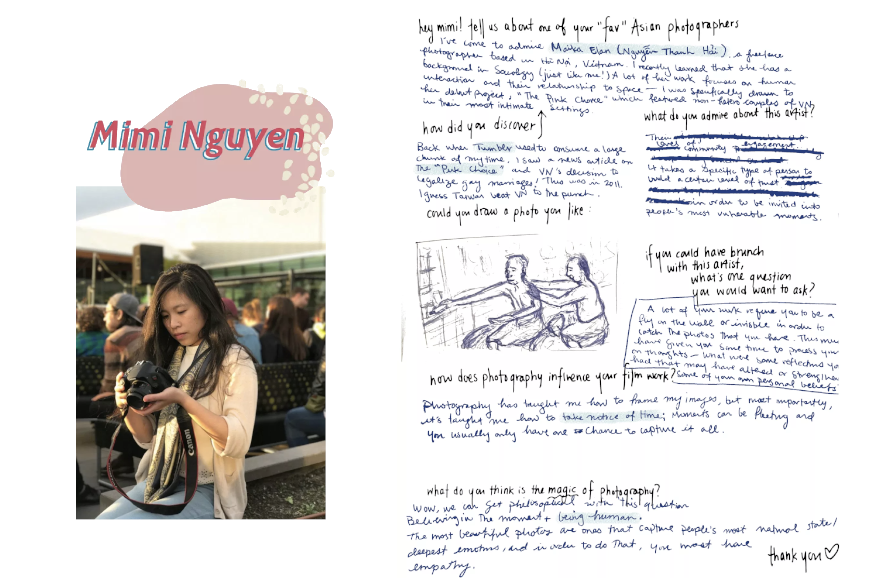 Mimi Nguyen
Canon
hey mimi! tell us about one of your "fav" Asian photographers
I've come to admire Maika Elan (Nguyễn Thanh Hải), a freelance
photographer based in Hà Nội, Vietnam. I recently learned that she has a
background in Sociology (just like me!) A lot of her work focuses on human
interaction and their relationship to space — I was specifically drawn to
her debut project, "The Pink Choice" which featured non-hetero couples of VN
in their most intimate settings.
how did you discover
Back when Tumblr used to consume a large
chunk of my time, I saw a news article on
The "Pink Choice" and VN's decision to
legalize gay marriages! This was in 2011.
I guess Taiwan beat VN to the punch.
what do you admire about this artist?
Their
level of
It takes a specific type of person to
build a certain level of trust
in order to be invited into
people's most vulnerable moments.
could you draw a photo you like:
if you could have brunch
with this artist,
what's one question
you would want to ask?
A lot of your work require you to be a
fly in the wall or invisible in order to
catch the photos that you have. This must
have given you some time to process your
own thoughts — what were some reflections you
had that may have altered or strengthen
some of your own personal beliefs
how does photography influence your film work?
Photography has taught me how to frame my images, but most importantly,
it's taught me how to take notice of time; moments can be fleeting and
you usually only have one chance to capture it all.
what do you think is the magic of photography?
Wow, we can get philosophical with this question
Believing in the moment + being human.
The most beautiful photos are ones that capture people's most natural state/
deepest emotions, and in order to do that, you must have
empathy.
thank you ♡